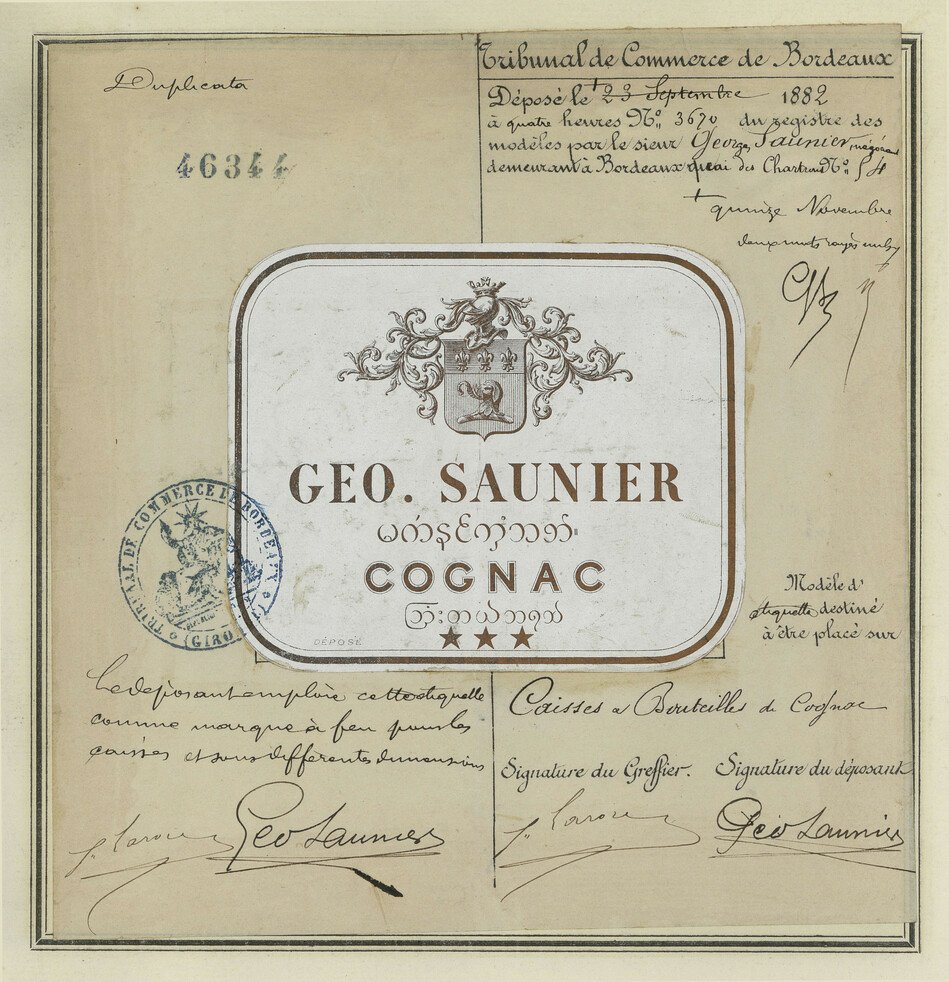 Duplicata
46344
Tribunal de Commerce de Bordeaux
Déposé le + 23 Septembre 1882
à quatre heures No. 3670 du registre des
modèles par le sieur Georges Saunier, négociant
demeurant à Bordeaux quai des Chartrons No. 54
+ quinze Novembre
deux mots rayés nuls
GEO. SAUNIER
COGNAC
DÉPOSÉ
TRIBUNAL DE COMMERCE DE BORDEAUX
Modèle d'
étiquette destiné
à être placé sur
Caisses & Bouteilles de Cognac
Le déposant emploie cette étiquette
comme marque à feu pour les
caisses et sous différentes dimensions
Signature du Greffier. Signature du déposant
Geo Saunier
Geo Saunier